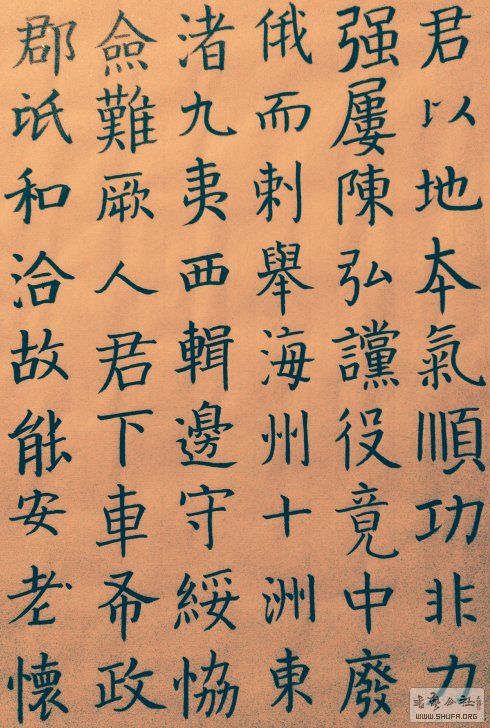 君以地本氣順功非力
强屢陳弘讜役竟中廢
俄而刺舉海州十洲東
渚九夷西輯邊守綏恊
僉難厥人君下車布政
郡氓和洽故能安老懷
WWW.SHUFA.ORG